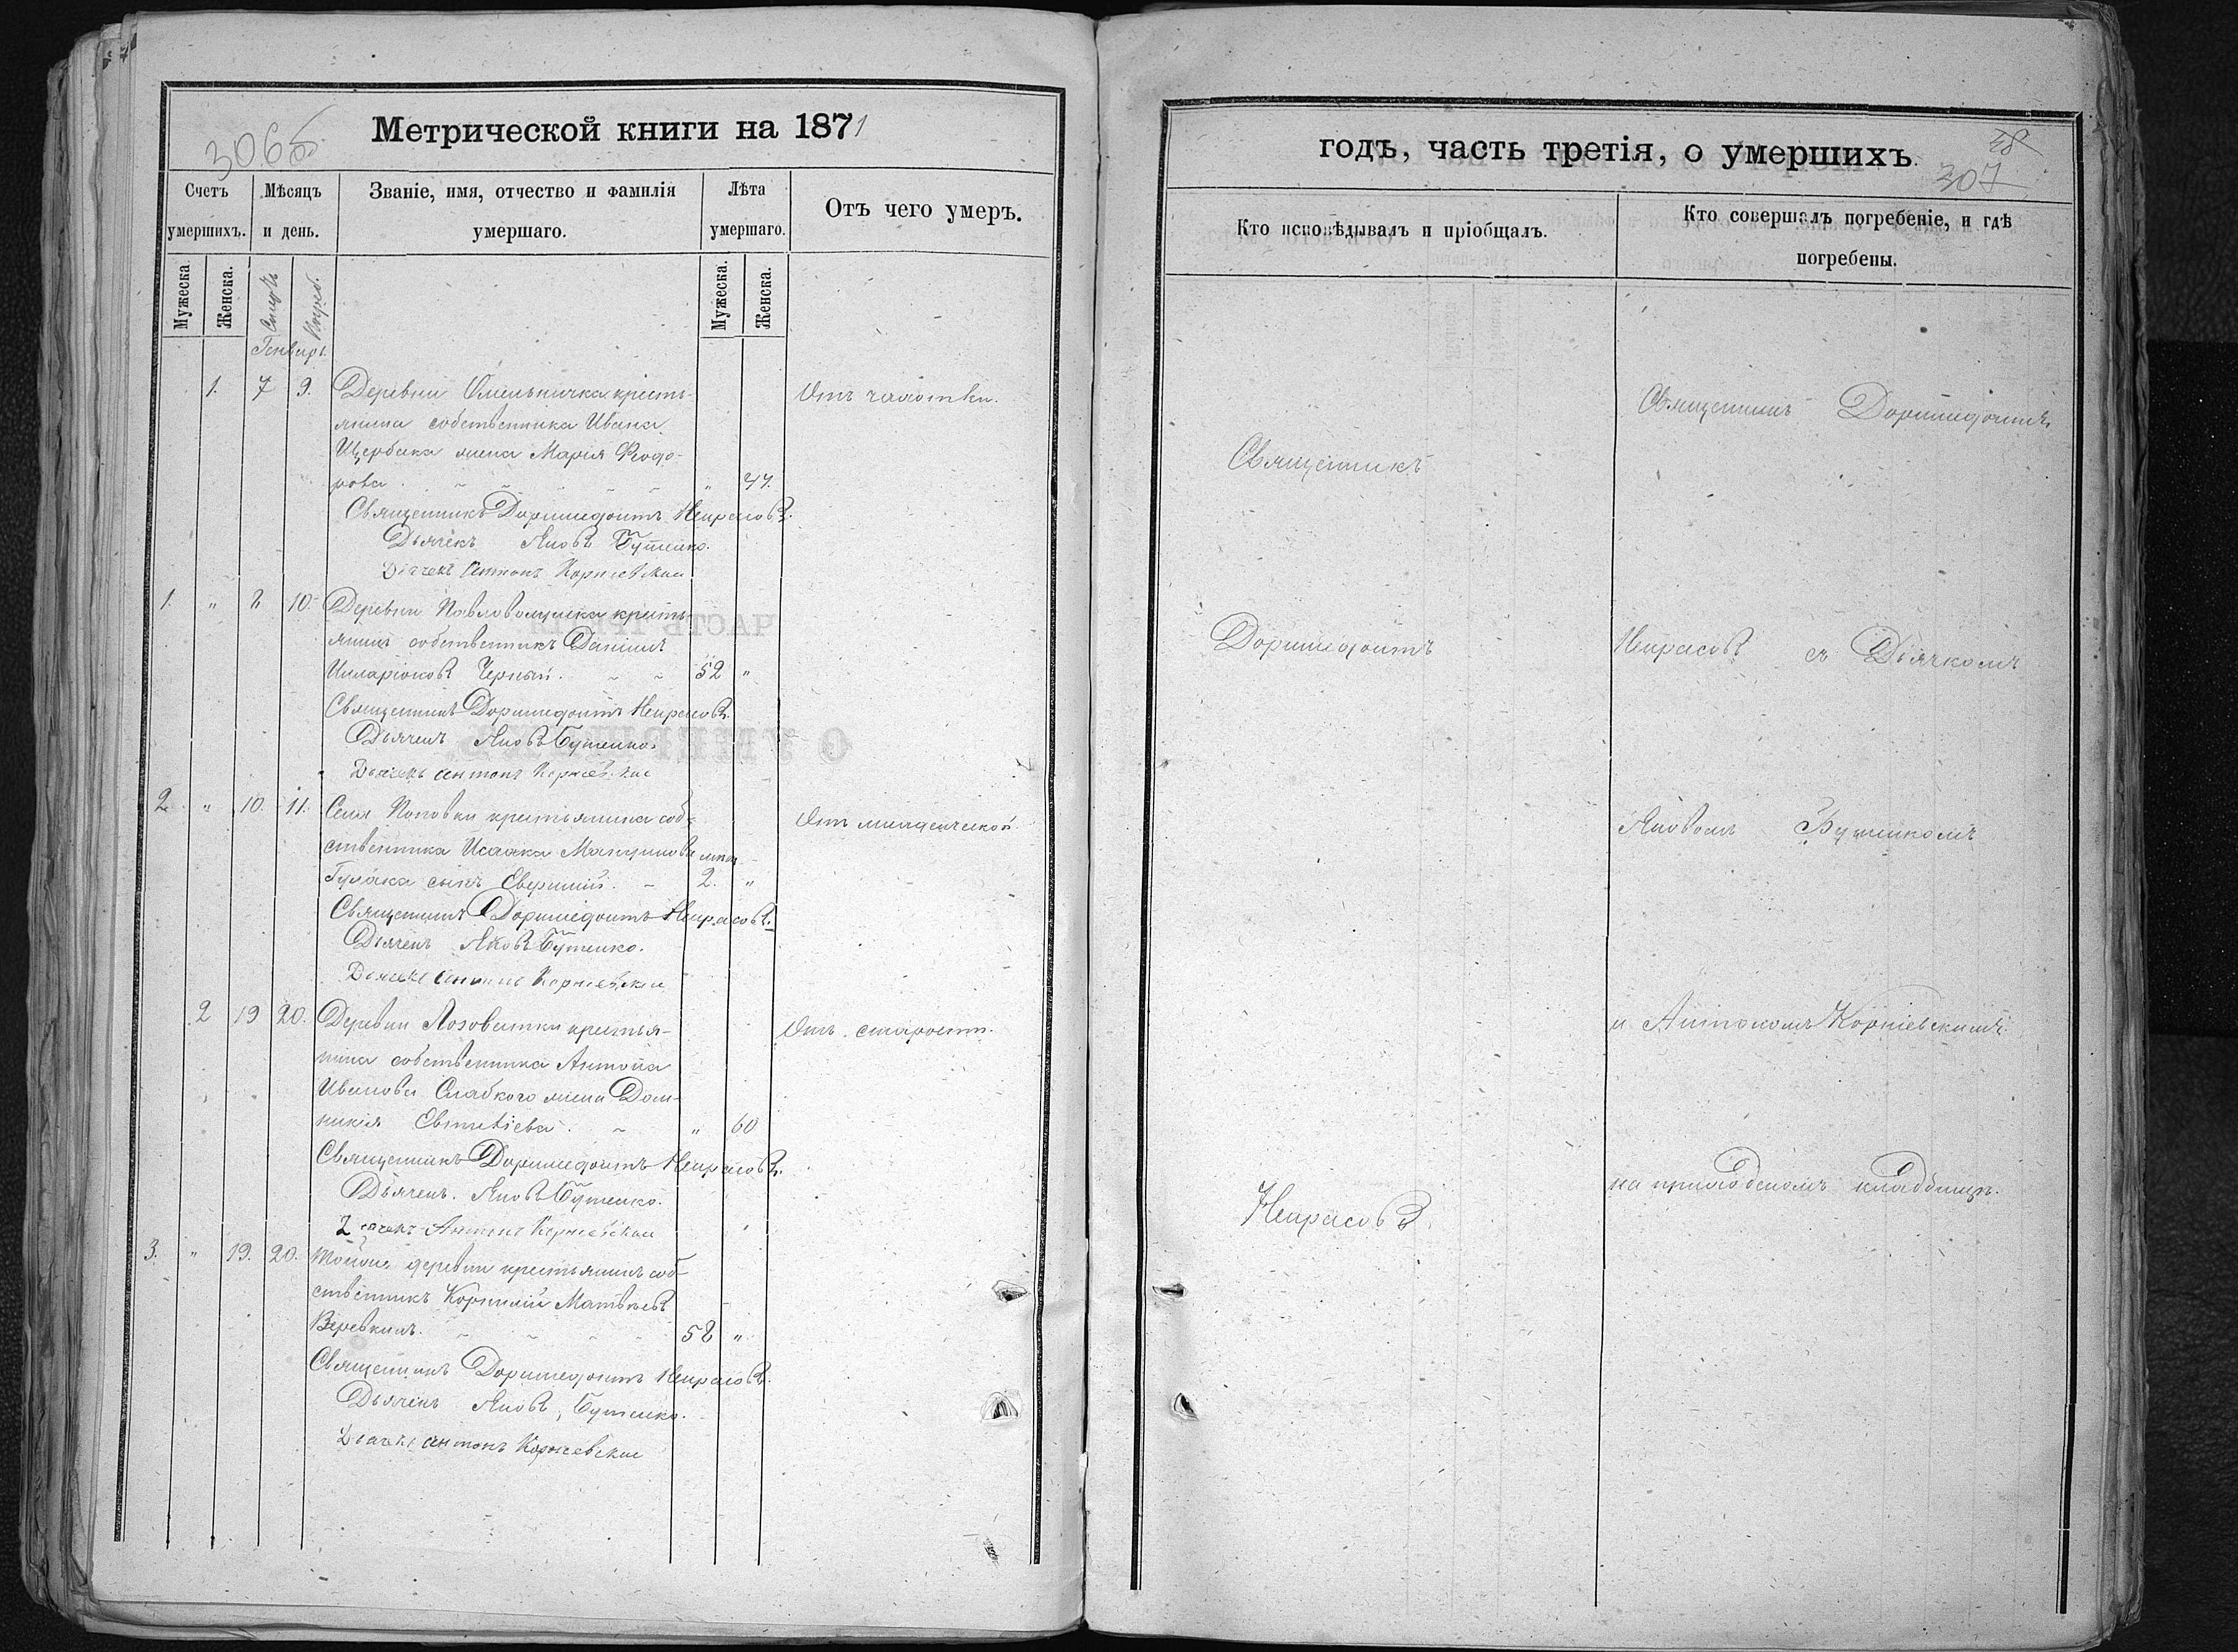 Метрической книги на 1871
306 об.
Счетъ умершихъ.
Мѣсяцъ и день.
Званіе, имя, отчество и фамилія умершаго.
Лѣта умершаго.
Отъ чего умеръ.
Мужеска.
Женска.
Смерть
Погреб.
Мужеска.
Женска.
Генварь.
1. 7 9. Деревни Омельничка кресть-
Отъ чахотки.
янина собственника Ивана
Щербака жена Марія Ѳеодо-
рова. " 47.
Священникъ Доримедонтъ Некрасовъ.
Дьячекъ Яковъ Бутенко.
Дьячекъ Антонъ Корніевскій
1. " 8 10. Деревни Павловощика кресть-
янинъ собственникъ Даніилъ
Илларіоновъ Черный. 52 "
Священникъ Доримедонтъ Некрасовъ.
Дьячекъ Яковъ Бутенко.
Дьячекъ Антонъ Корніевскій
2. " 10. 11. Села Поповки крестьянина соб-
Отъ младенческой
ственника Исаака
Гулака сынъ 2. "
Священникъ Доримедонтъ Некрасовъ.
Дьячекъ Яковъ Бутенко.
Дьячекъ Антонъ Корніевскій
2 19 20. Деревни Лозоватки крестья-
Отъ старости.
нина собственника Антона
Иванова Слабкого жена Дом-
никія Евтихіева. " 60
Священникъ Доримедонтъ Некрасовъ.
Дьячекъ. Яковъ Бутенко.
Дьячекъ Антонъ Корніевскій
3. " 19. 20. Тойже деревни крестьянинъ соб-
ственникъ Корнилій Матвѣевъ
Веревкинъ. 58 "
Священникъ Доримедонтъ Некрасовъ.
Дьячекъ Яковъ Бутенко.
Дьячекъ Антонъ Корніевскій
годъ, часть третія, о умершихъ.
38
307
Кто исповѣдывалъ и пріобщалъ.
Кто совершалъ погребеніе, и гдѣ погребены.
Священникъ
Доримедонтъ
Некрасовъ
Священникъ Доримедонтъ
Некрасовъ съ Дьячкомъ
Яковомъ Бутенкомъ
и Антономъ Корніевскимъ.
на приходскомъ кладбищѣ.